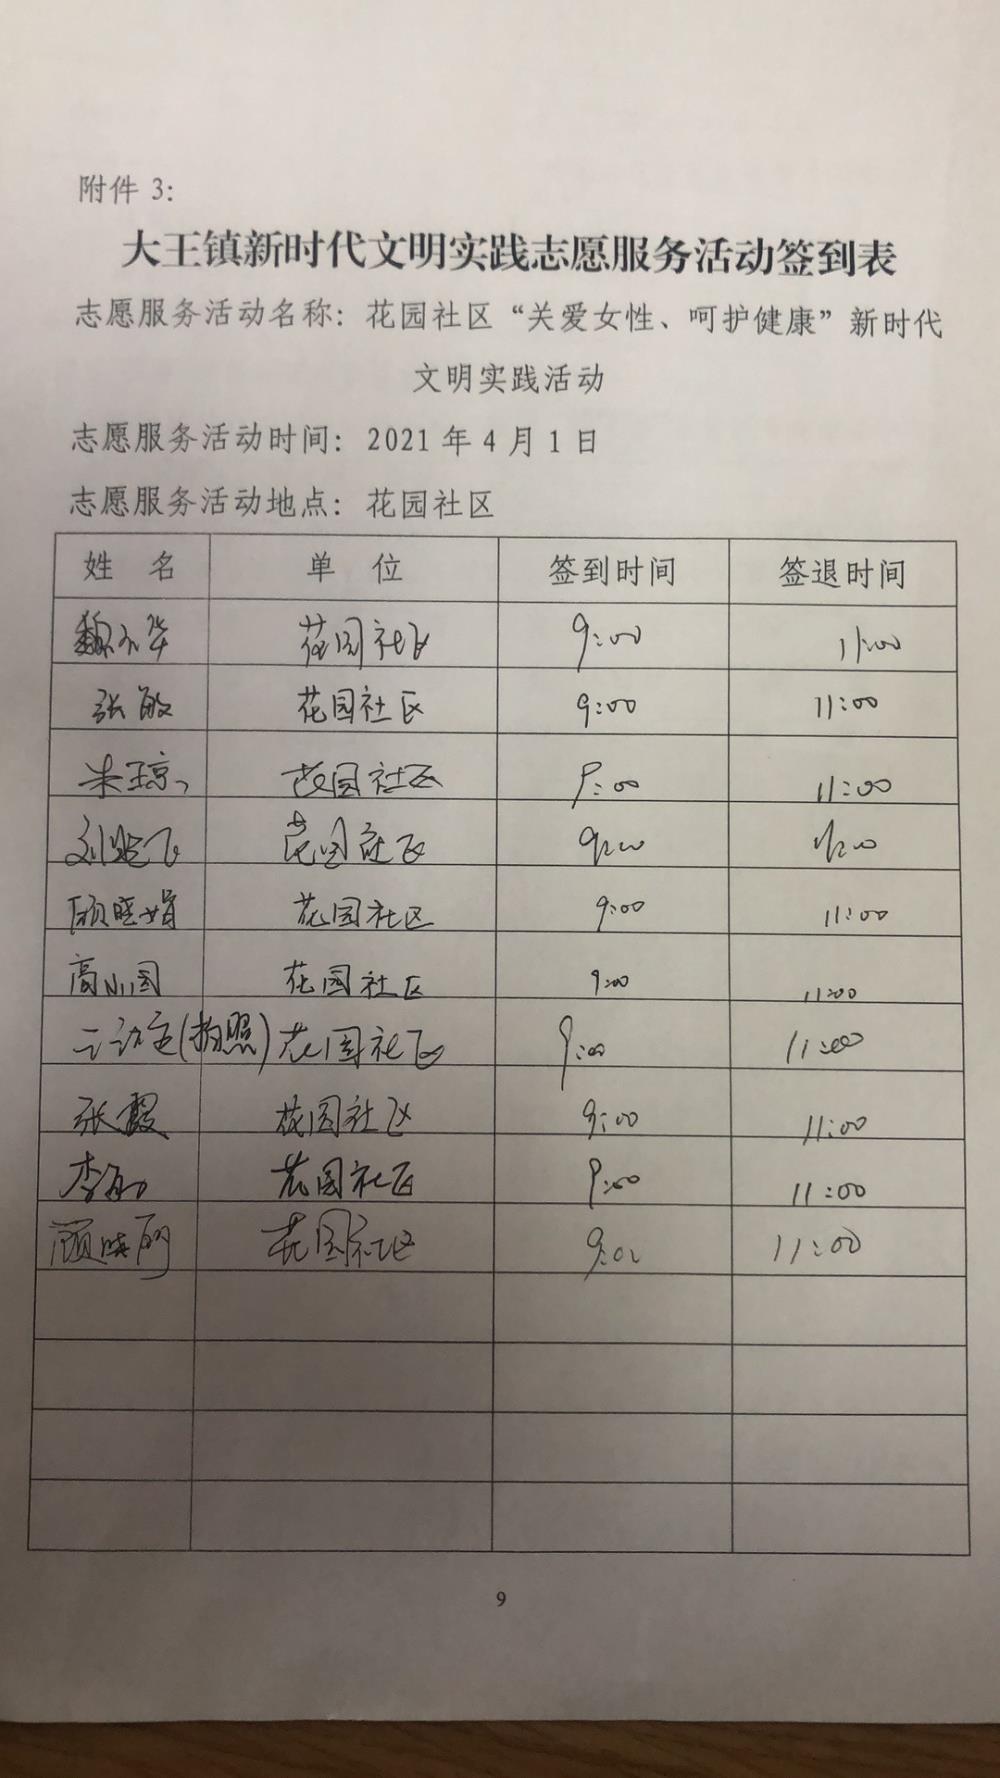 附件 3：
大王镇新时代文明实践志愿服务活动签到表
志愿服务活动名称：花园社区“关爱女性、呵护健康”新时代
文明实践活动
志愿服务活动时间：2021 年 4 月 1 日
志愿服务活动地点：花园社区
姓 名 单 位 签到时间 签退时间
花园社区 9:00 11:00
张敏 花园社区 9:00 11:00
花园社区 9:00 11:00
花园社区 9:00 11:00
顾晓娟 花园社区 9:00 11:00
高小园 花园社区 9:00 11:00
(拍照) 花园社区 9:00 11:00
张霞 花园社区 9:00 11:00
花园社区 9:00 11:00
花园社区 9:00 11:00
9